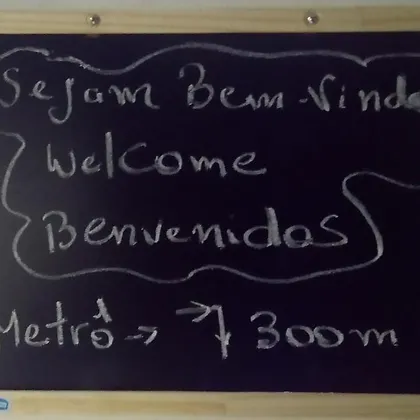 Sejam Bem-Vindo
Welcome
Benvenidos
Metrô → 300m